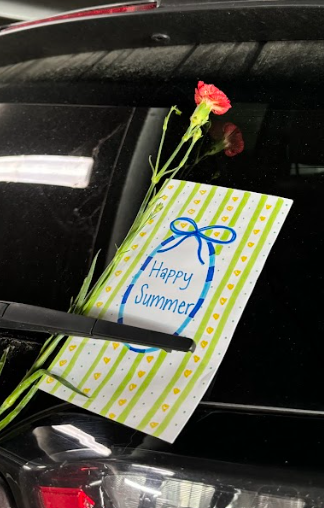 Happy
Summer